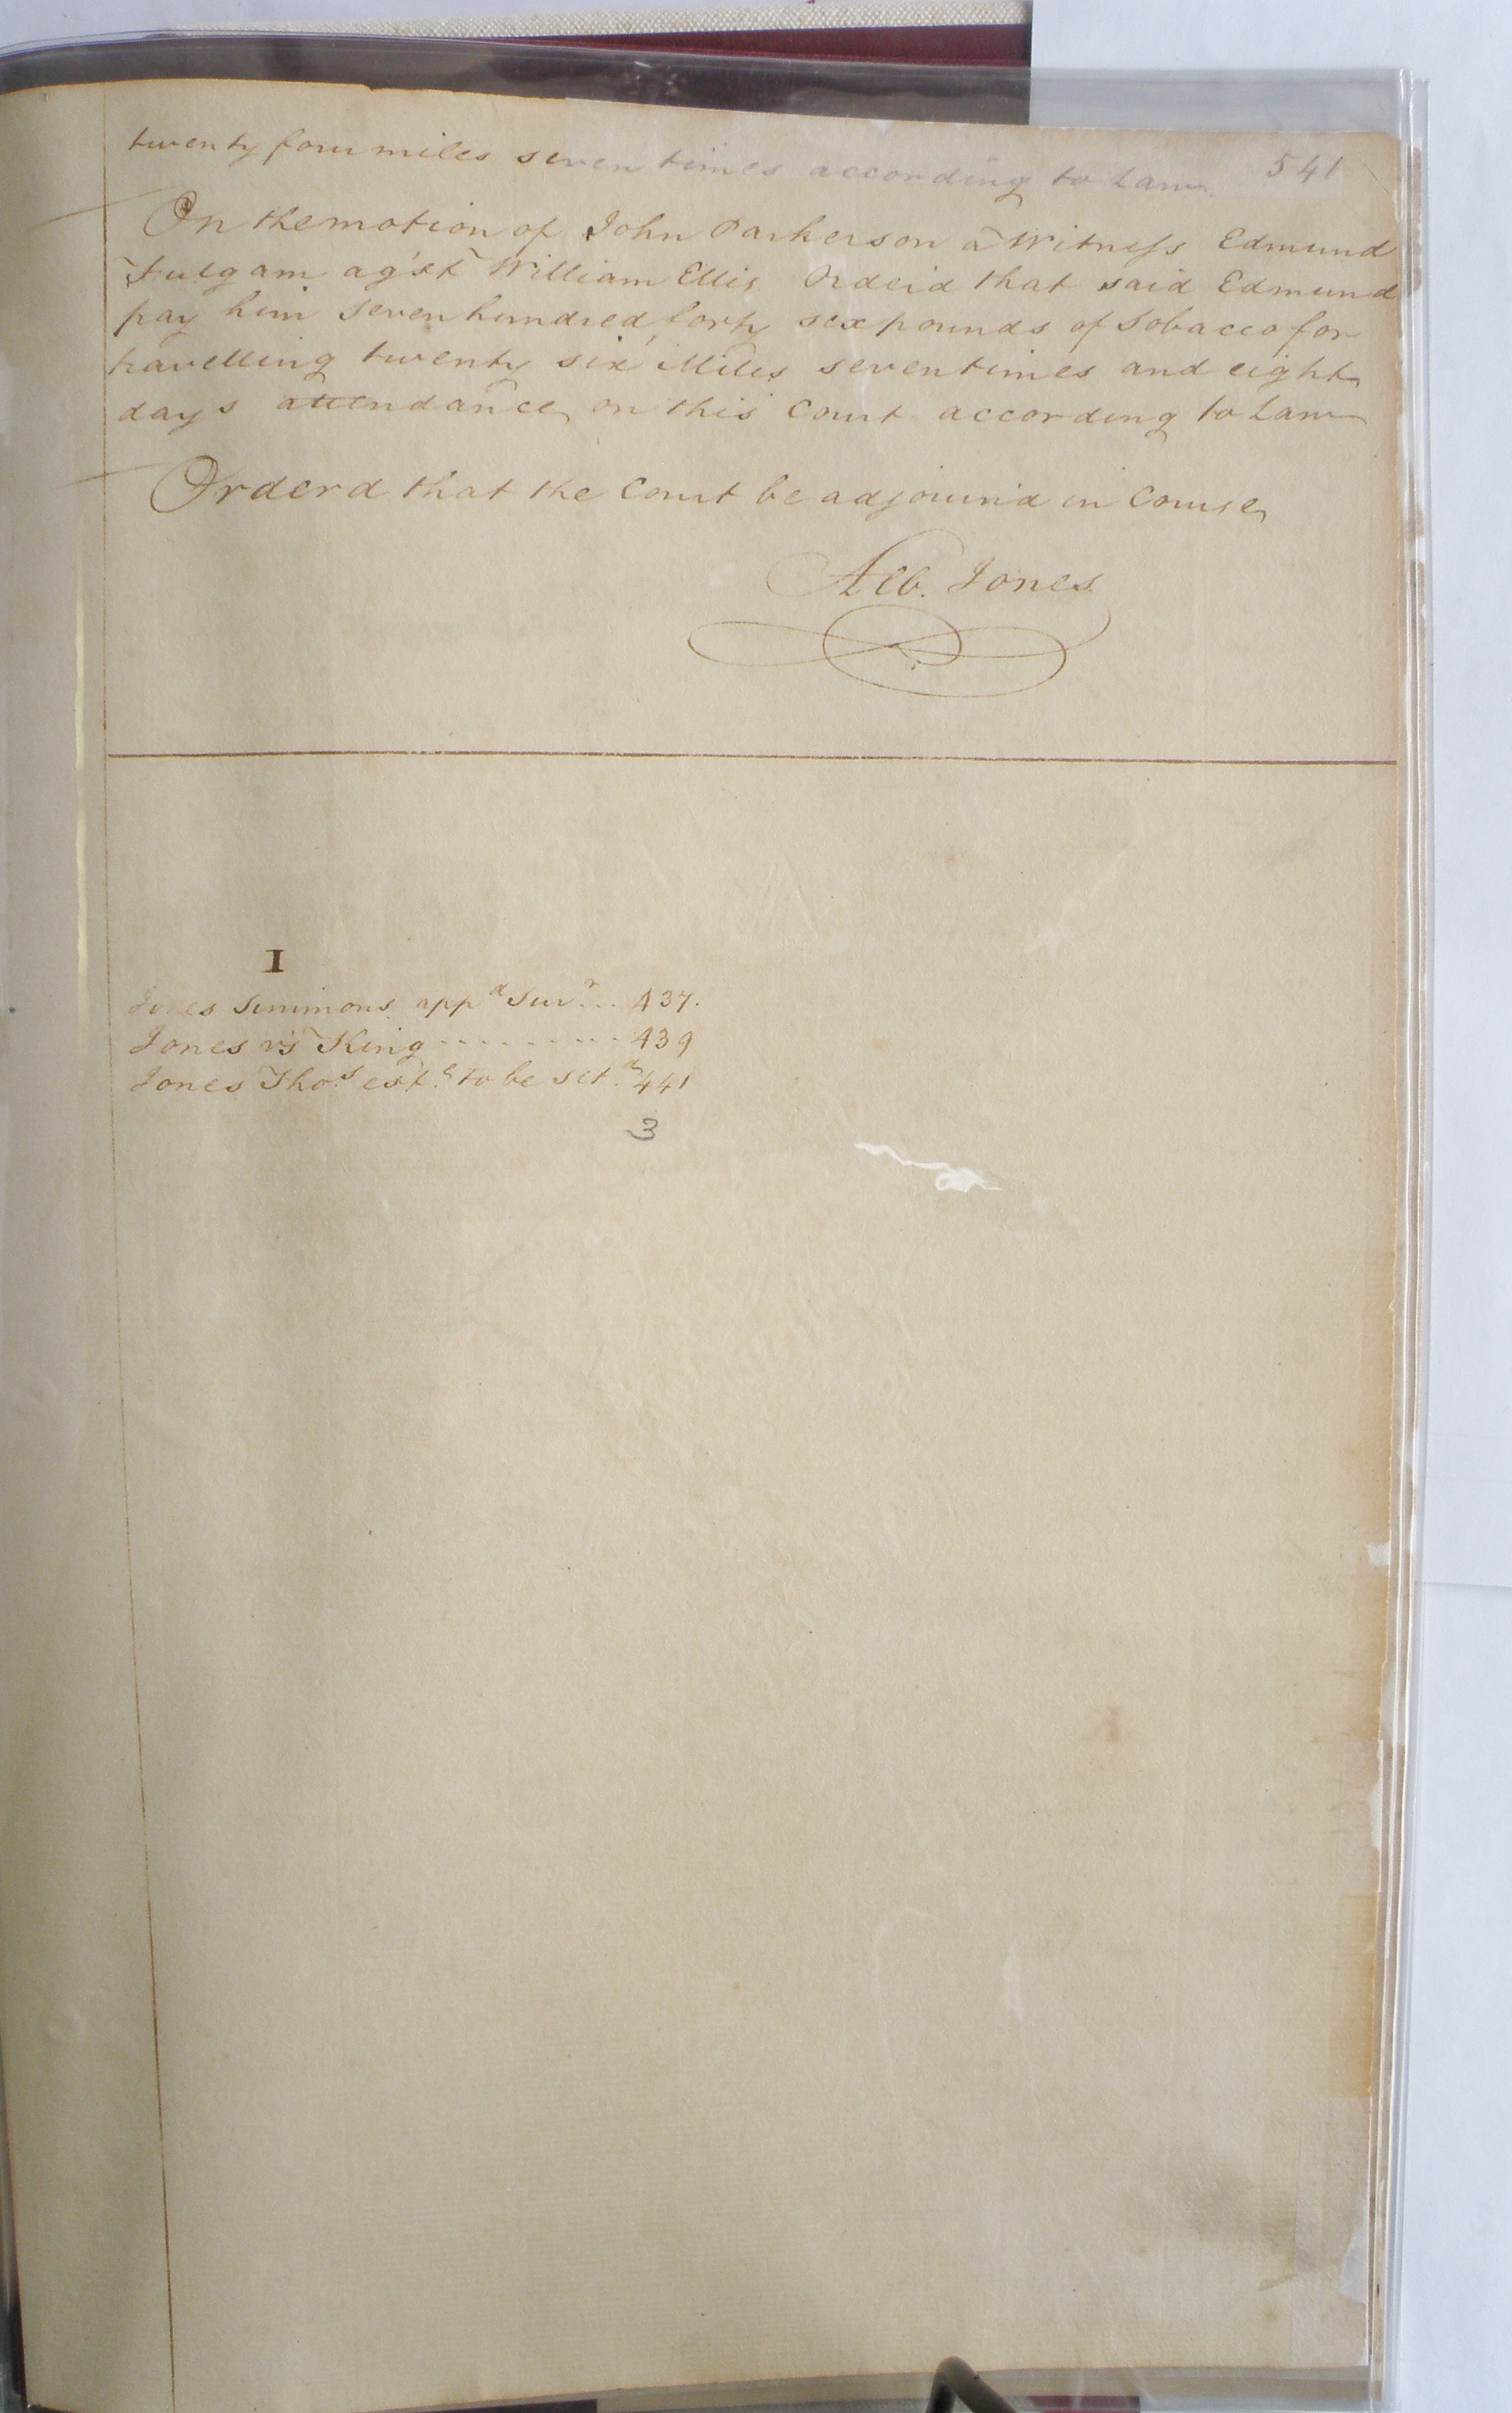 541
twenty four miles seven times according to Law.
On the motion of John Parkerson a Witness Edmund
Fulgam ag'st William Ellis Orderd that said Edmund
pay him seven hundred forty sex pounds of Tobacco for
travelling twenty six Miles seven times and eight
days attendance on this Court according to Law
Orderd that the Court be adjourn'd in Course
Jones
I
Jones Simmons app.d Sur.r ... 437.
Jones vs King ......... 439
Jones Tho.s est.e to be set.d 441
3